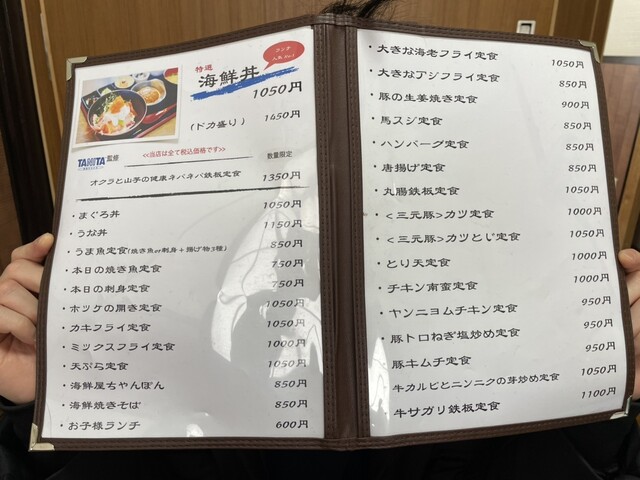 特選
海鮮丼
ランチ
人気 No.1
1050円
(ドカ盛り) 1450円
TANITA 監修
<<当店は全て税込価格です>>
数量限定
オクラと山芋の健康ネバネバ鉄板定食 1350円
・まぐろ丼 1050円
・うな丼 1150円
・うま魚定食(焼き魚or刺身+揚げ物3種) 850円
・本日の焼き魚定食 750円
・本日の刺身定食 750円
・ホッケの開き定食 1050円
・カキフライ定食 1050円
・ミックスフライ定食 1000円
・天ぷら定食 1050円
・海鮮屋ちゃんぽん 850円
・海鮮焼きそば 850円
・お子様ランチ 600円
・大きな海老フライ定食 1050円
・大きなアジフライ定食 850円
・豚の生姜焼き定食 900円
・馬スジ定食 850円
・ハンバーグ定食 850円
・唐揚げ定食 850円
・丸腸鉄板定食 1000円
・<三元豚>カツ定食 1000円
・<三元豚>カツとじ定食 1050円
・とり天定食 1000円
・チキン南蛮定食 1000円
・ヤンニョムチキン定食 950円
・豚トロねぎ塩炒め定食 950円
・豚キムチ定食 950円
・牛カルビとニンニクの芽炒め定食 1050円
・牛サガリ鉄板定食 1100円